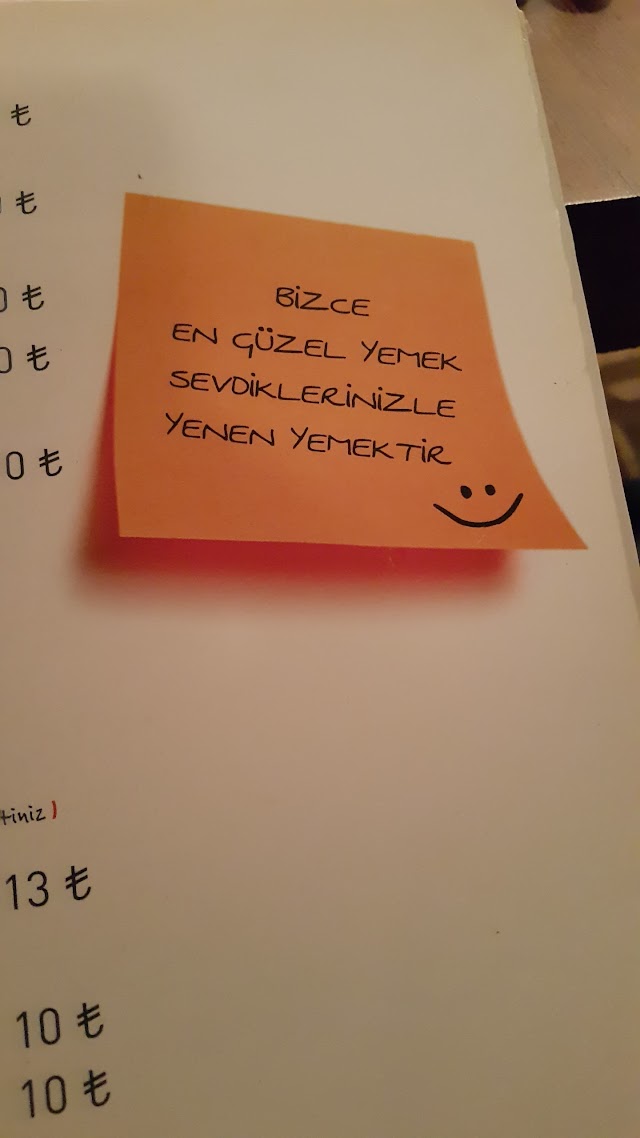 ₺
₺
0 ₺
0 ₺
0 ₺
BİZCE
EN GÜZEL YEMEK
SEVDİKLERİNİZLE
YENEN YEMEKTİR
tiniz)
13 ₺
10 ₺
10 ₺